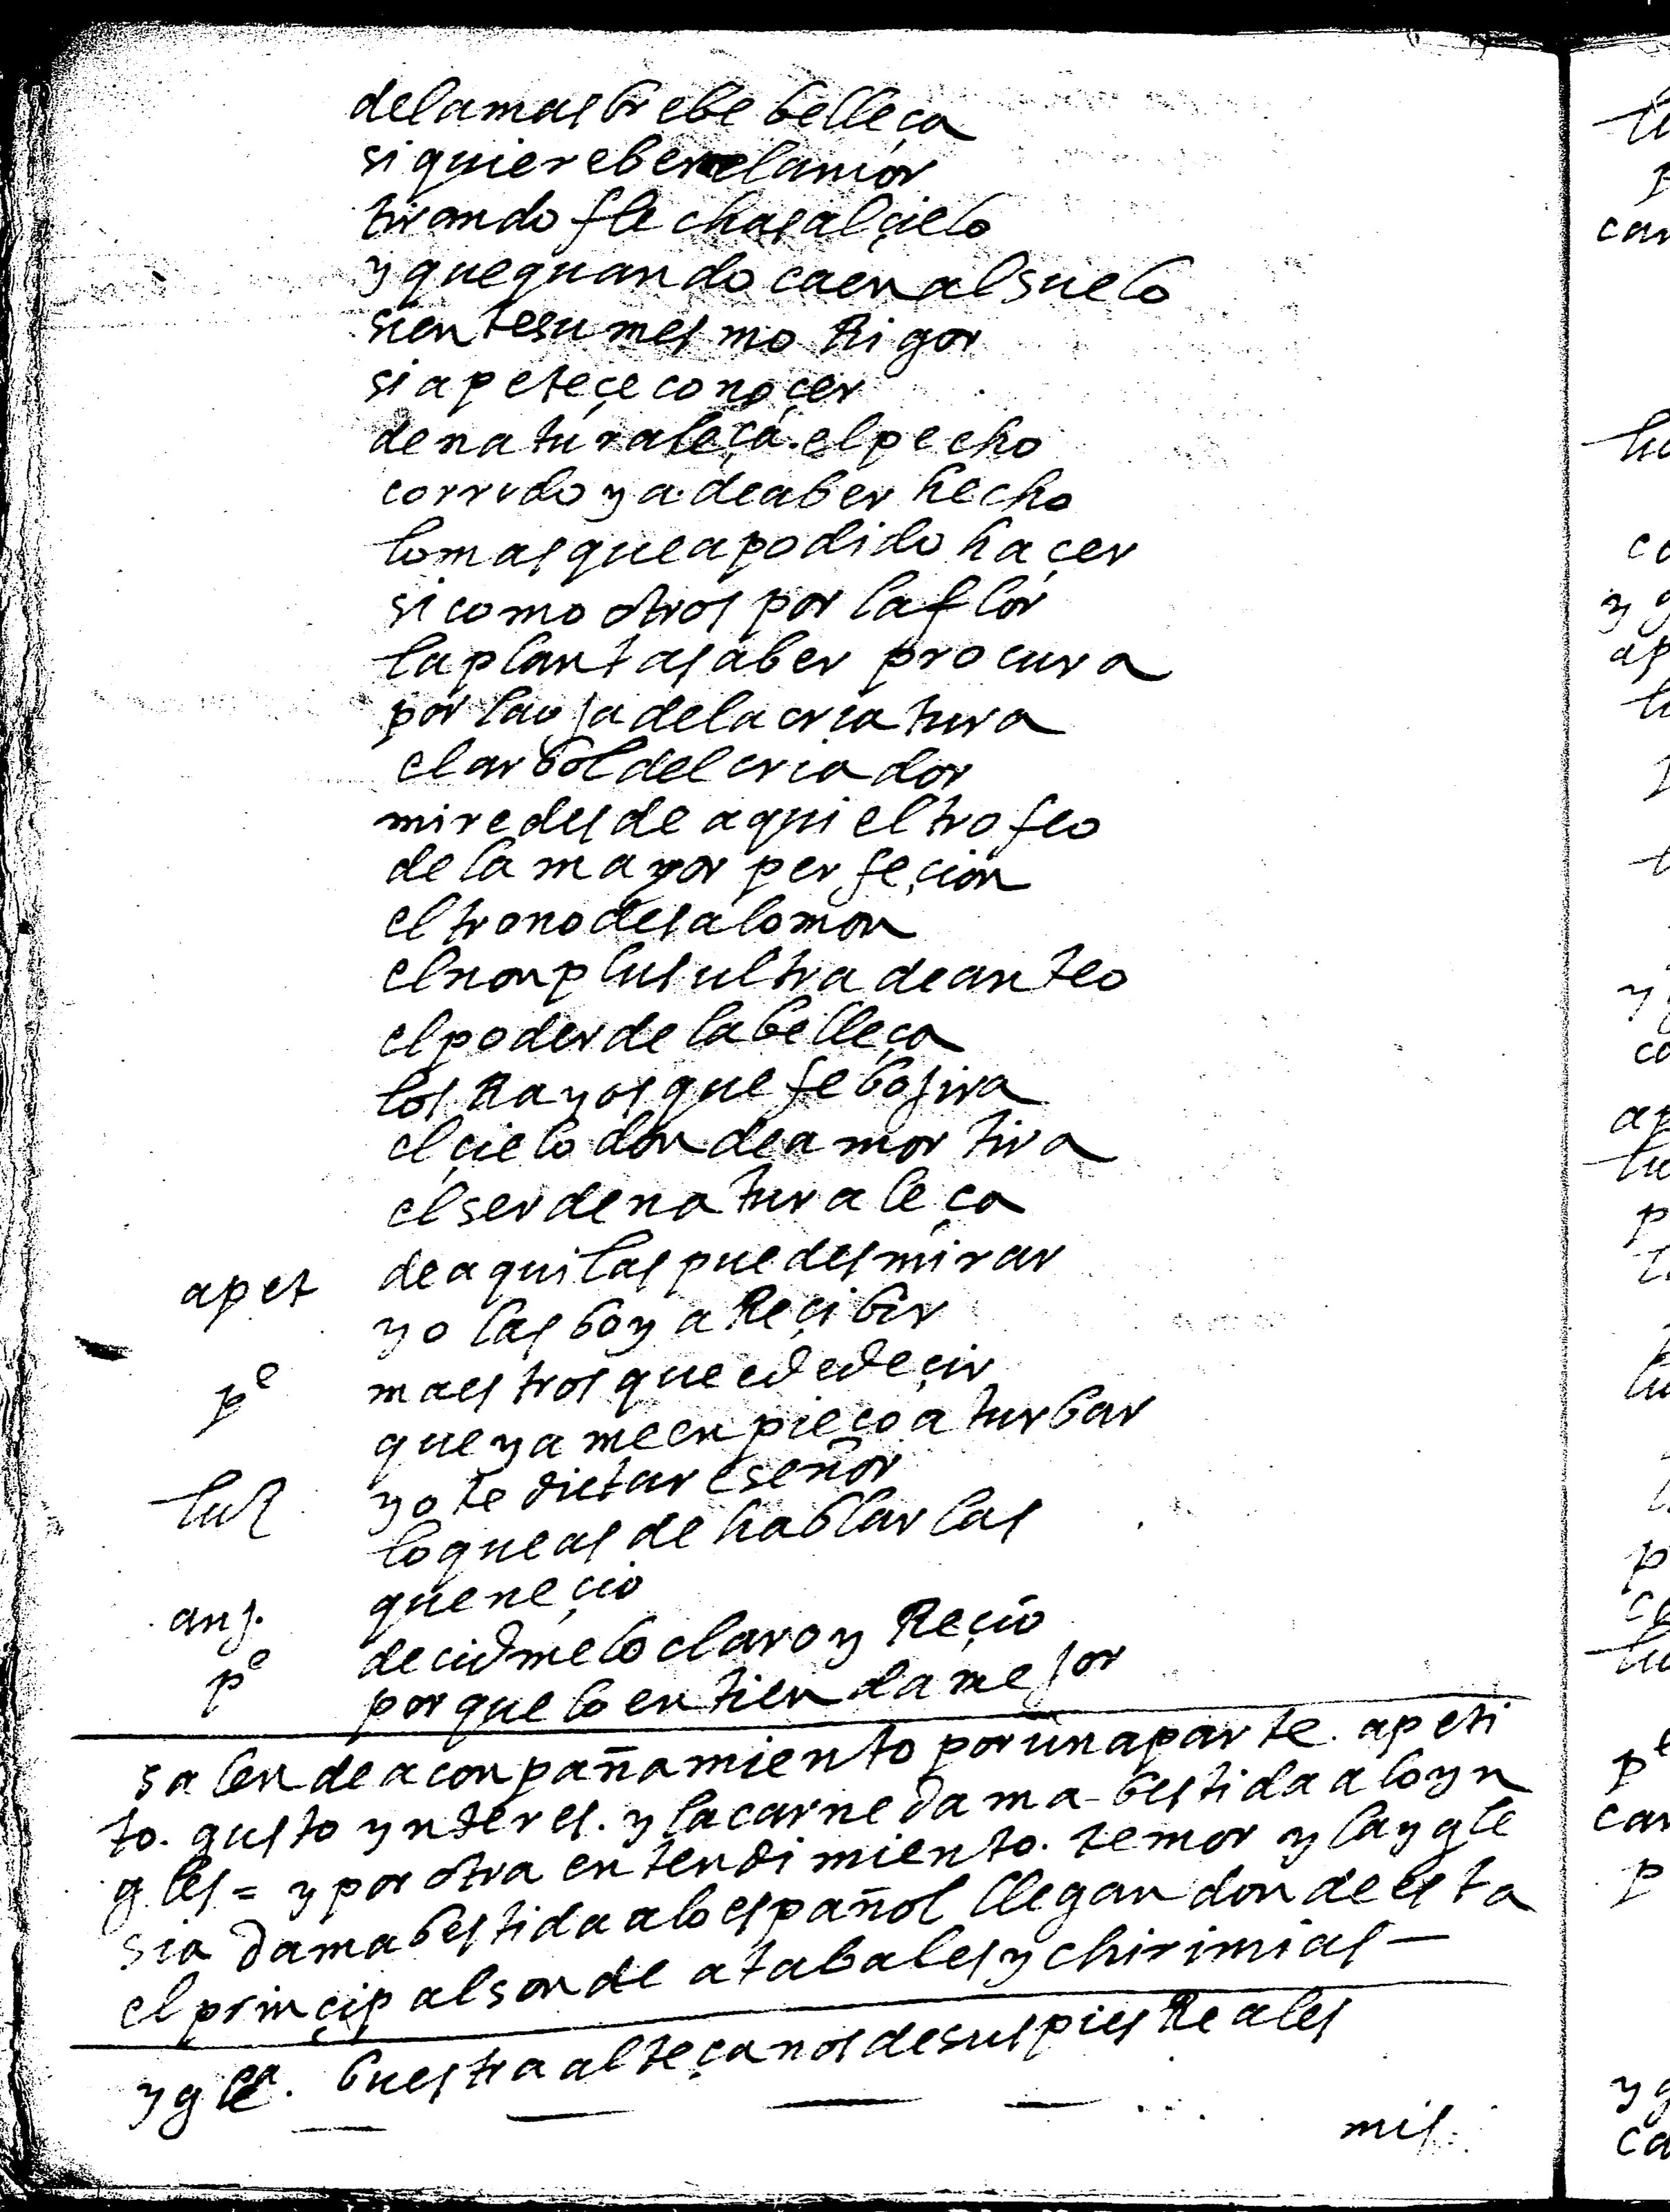 de la mas brebe belleça
si quiere ber el amor
tirando flechas al çielo
y que quando caen al suelo
siente su mesmo Rigor
si apeteçe conoçer
de naturaleça. el pecho
corrido ya de aber hecho
lo mas que a podido haçer
si como otros por la flor
la planta saber procura
por la oja de la criatura
el arbol del criador
mire desde aqui el trofeo
de la mayor perfeçion
el trono de salomon
el non plus ultra de anteo
el poder de la belleça
los Rayos que febo jira
el çielo donde amor tira
el ser de naturaleça
apet de aqui las puedes mirar
yo las boy a Reçibir
pe maestros que e de deçir
que ya me enpieço a turbar
luz yo te dictare señor
lo que as de hablarlas
anj. que neçio
pe decidmelo claro y Reçio
porque lo entienda mejor
salen de aconpañamiento por una parte. apeti
to. gusto ynteres. y la carne dama bestida a lo yn
gles = y por otra entendimiento. temor y la ygle
sia dama bestida a lo español llegan donde esta
el prinçip al son de atabales y chirimias —
yglea. buestra alteça nos de sus pies Reales
mis